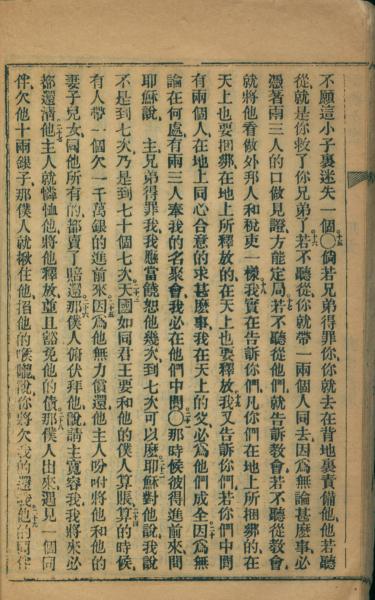 不願這小子裏迷失一個○倘若兄弟得罪你你就去在背地裏責備他他若聽
從就是你救了你兄弟了若不聽從你就帶一兩個人同去因爲無論甚麽事必
憑著兩三人的口做見證方能定局若不聽從他們就告訴教會若不聽從教會
就將他看做外邦人和稅吏一樣我實在告訴你們凡你們在地上所捆綁的在
天上也要捆綁在地上所釋放的在天上也要釋放我又告訴你們若你們中間
有兩個人在地上同心合意的求甚麽事我在天上的父必爲他們成全因爲無
論在何處有兩三人奉我的名聚會我必在他們中間○那時候彼得進前來問
耶穌說主兄弟得罪我我應當饒恕他幾次到七次可以麽耶穌對他說我說
不是到七次乃是到七十個七次天國如同君王要和他的僕人算賬算的時候
有人帶一個欠一千萬銀的進前來因爲他無力償還他主人吩咐將他和他的
妻子兒女同他所有的都賣了賠還那僕人俯伏拜他說請主寬容我我將來必
都還清他主人就憐恤他將他釋放並且豁免他的債那僕人出來遇見一個同
伴欠他十兩銀子那僕人就揪住他掐他的喉嚨說你將欠我的還我他的同伴